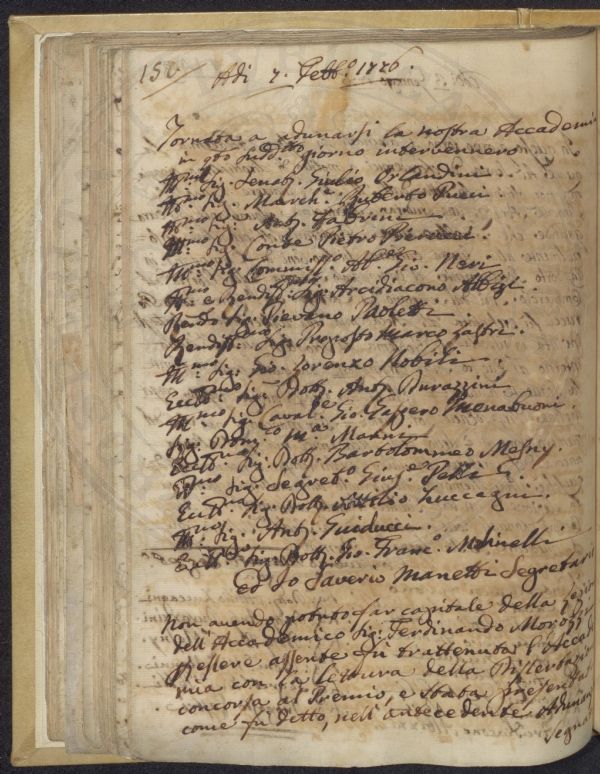 150
Adi 7. Febb.o 1776.
Tornata a adunarsi la nostra Accademia
in q.to sudd.tto giorno intervennero
Ill.mo Sig. Senat.e Giulio Orlandini
Ill.mo Sig. March.e Ruberto Pucci
Ill.mo Sig. Ant.o Fabrini
Ill.mo Sig. Conte Pietro
Ill.mo Sig. Commiss.o Ab.e Gio. Neri
Ill. e Rendiss. Sig. Arcidiacono Albizi
Rendo Sig. Pievano Paoletti
Rendiss. Sig. Proposto Marco Lastri
Ill.mo Sig. Gio. Lorenzo Nobili
Ecc.mo Sig. Dott. Ant.o Durazzini
Ill.mo Sig. Caval.e Gio. Gaspero Menabuoni
Sig. Dom.co M.a Manni
Ecc.mo Sig. Dott. Bartolommeo Mesny
Ill.mo Sig. Segret.o Gius.e Pelli
Ecc.mo Sig. Dott. Attilio Zuccagni
Ill.mo Sig. Ant.o Guiducci
Ecc.mo Sig. Dott. Gio. Franc.o Molinelli
Ed Io Saverio Manetti Segretario
Non avendo potuto far capitale della
dell'Accademico Sig. Ferdinando Morozzi
essere assente fù trattenuta l'Accade
mia con la lettura della Dissertazione
concorsa al Premio, e stata presentata
come fù detto, nell'antecedente Adunanza
Segna